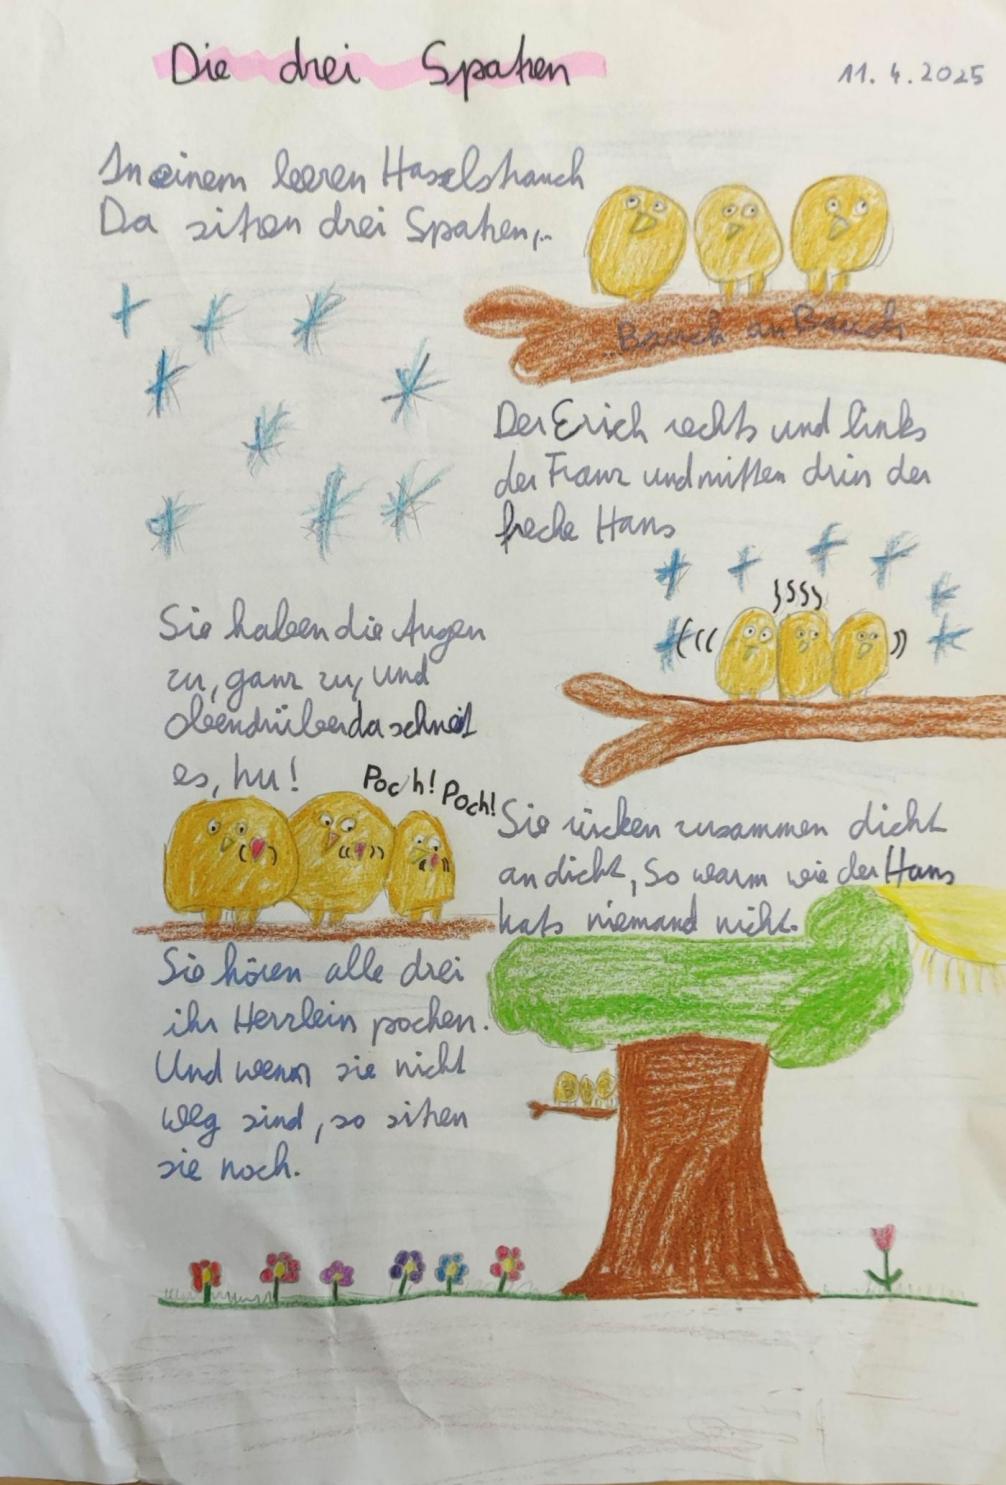 Die drei Spatzen
11.4.2025
In einem leeren Haselstrauch
Da sitzen drei Spatzen,..
..Bauch an Bauch
Der Erich rechts und links
der Franz und mitten drin der
freche Hans
Sie haben die Augen
zu, ganz zu, und
obendrüber da schneit
es, hu!
Poch! Poch!
Sie rücken zusammen dicht
an dicht, So warm wie der Hans
hats niemand nicht.
Sie hören alle drei
ihr Herzlein pochen.
Und wenn sie nicht
weg sind, so sitzen
sie noch.